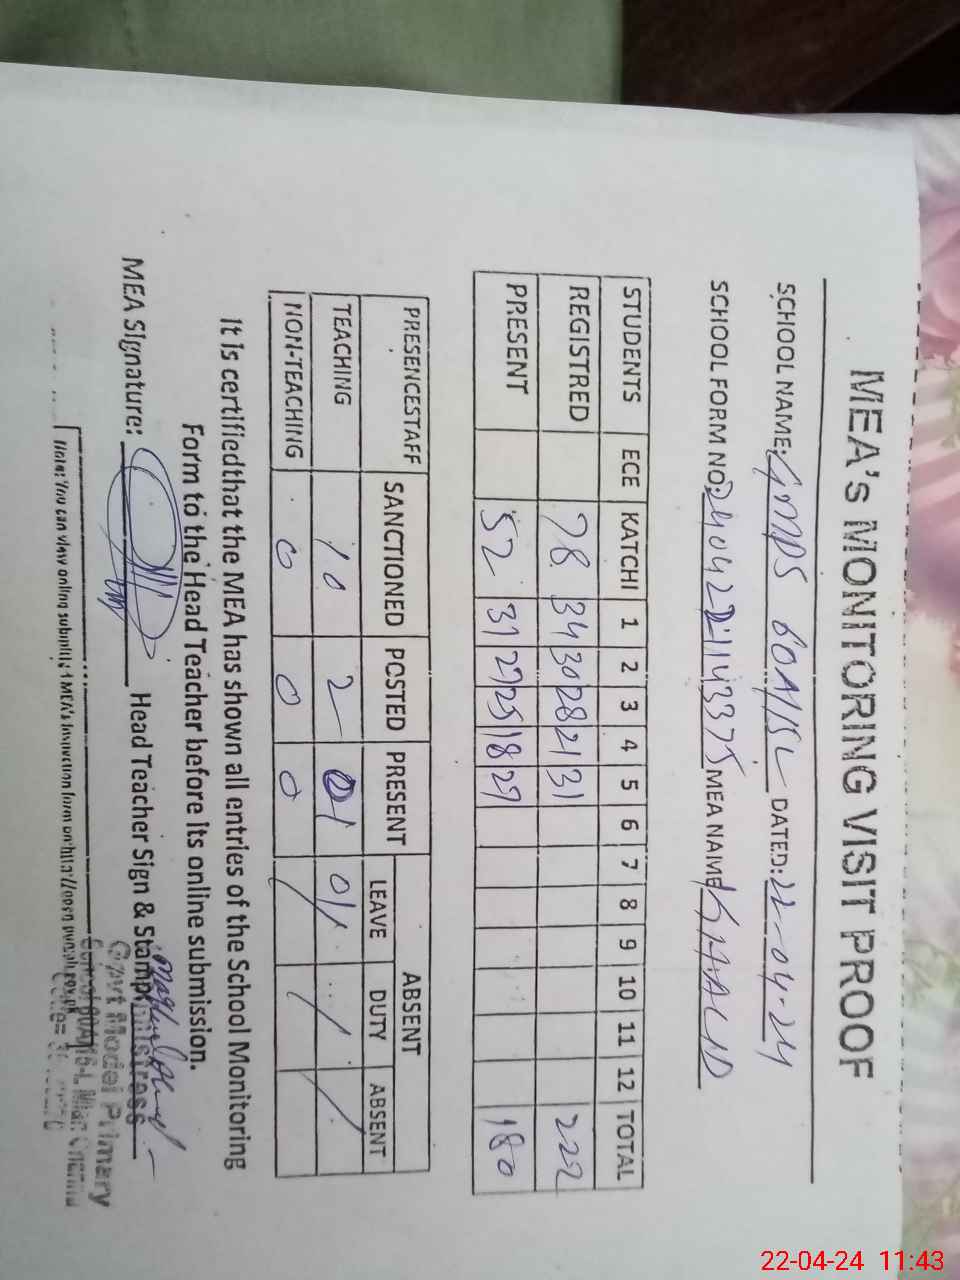 MEA's MONITORING VISIT PROOF
SCHOOL NAME: GMPS 60A/15L DATED: 22-04-24
SCHOOL FORM NO: MEA NAME KHALID
STUDENTS ECE KATCHI 1 2 3 4 5 6 7 8 9 10 11 12 TOTAL
REGISTRED 78 34 30 28 21 31 222
PRESENT 52 31 27 25 18 27 180
PRESENCESTAFF SANCTIONED POSTED PRESENT ABSENT
LEAVE DUTY ABSENT
TEACHING 10 2 01 01
NON-TEACHING 0 0 0
It is certifiedthat the MEA has shown all entries of the School Monitoring
Form to the Head Teacher before its online submission.
MEA Signature: Head Teacher Sign & Stamp
Govt Model Primary
Note: You can view online submitted MEA's Inspection form on
22-04-24 11:43